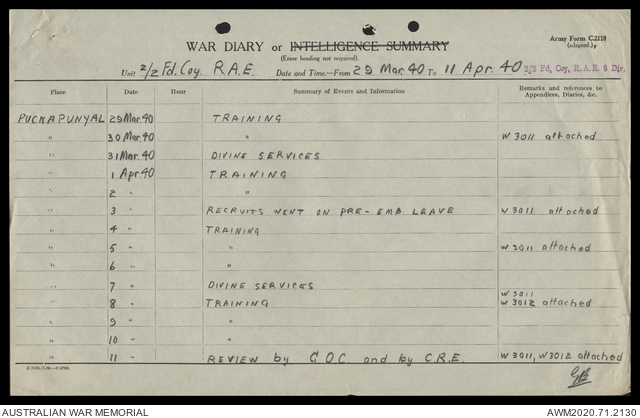 Army Form C.2118
(adapted.)
WAR DIARY or INTELLIGENCE SUMMARY
(Erase heading not required).
Unit 2/2 Fd. Coy. R.A.E. Date and Time.—From 29 Mar. 40 To 11 Apr. 40 2/2 Fd. Coy, R.A.E. 6 Div.
Place Date Hour Summary of Events and Information Remarks and references to Appendices, Diaries, &c.
PUCKAPUNYAL 29 Mar. 40 TRAINING
" 30 Mar. 40 " W 3011 attached
" 31 Mar. 40 DIVINE SERVICES
" 1 Apr. 40 TRAINING
" 2 " "
" 3 " RECRUITS WENT ON PRE-EMB LEAVE W 3011 attached
" 4 " TRAINING
" 5 " " W 3011 attached
" 6 " "
" 7 " DIVINE SERVICES
" 8 " TRAINING W 3011 W 3012 attached
" 9 " "
" 10 " "
" 11 " REVIEW by G.O.C. and by C.R.E. W 3011, W 3012 attached
AUSTRALIAN WAR MEMORIAL AWM2020.71.2130